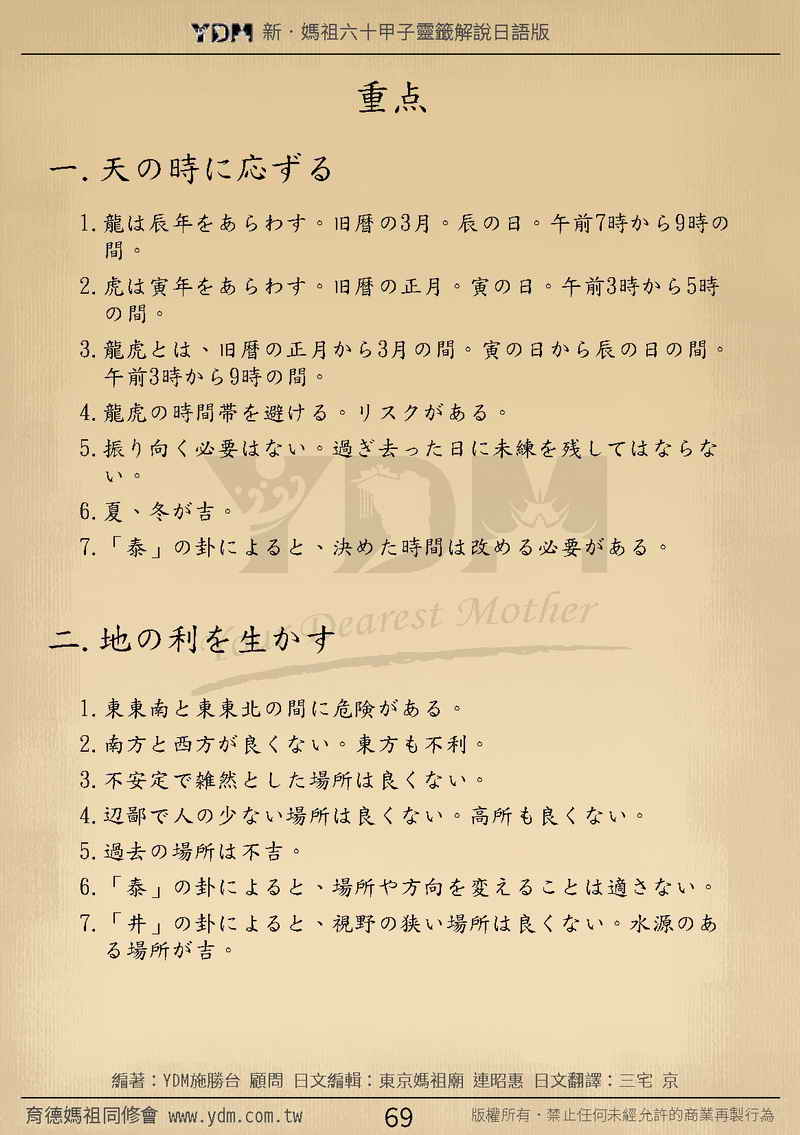 YDM 新・媽祖六十甲子靈籤解說日語版
重点
一. 天の時に応ずる
1. 龍は辰年をあらわす。旧暦の3月。辰の日。午前7時から9時の
間。
2. 虎は寅年をあらわす。旧暦の正月。寅の日。午前3時から5時
の間。
3. 龍虎とは、旧暦の正月から3月の間。寅の日から辰の日の間。
午前3時から9時の間。
4. 龍虎の時間帯を避ける。リスクがある。
5. 振り向く必要はない。過ぎ去った日に未練を残してはならな
い。
6. 夏、冬が吉。
7. 「泰」の卦によると、決めた時間は改める必要がある。
YDM
Your Dearest Mother
二. 地の利を生かす
1. 東東南と東東北の間に危険がある。
2. 南方と西方が良くない。東方も不利。
3. 不安定で雑然とした場所は良くない。
4. 辺鄙で人の少ない場所は良くない。高所も良くない。
5. 過去の場所は不吉。
6. 「泰」の卦によると、場所や方向を変えることは適さない。
7. 「井」の卦によると、視野の狭い場所は良くない。水源のあ
る場所が吉。
編著：YDM施勝台 顧問 日文編輯：東京媽祖廟 連昭惠 日文翻譯：三宅 京
育德媽祖同修會 www.ydm.com.tw 69 版權所有・禁止任何未經允許的商業再製行為